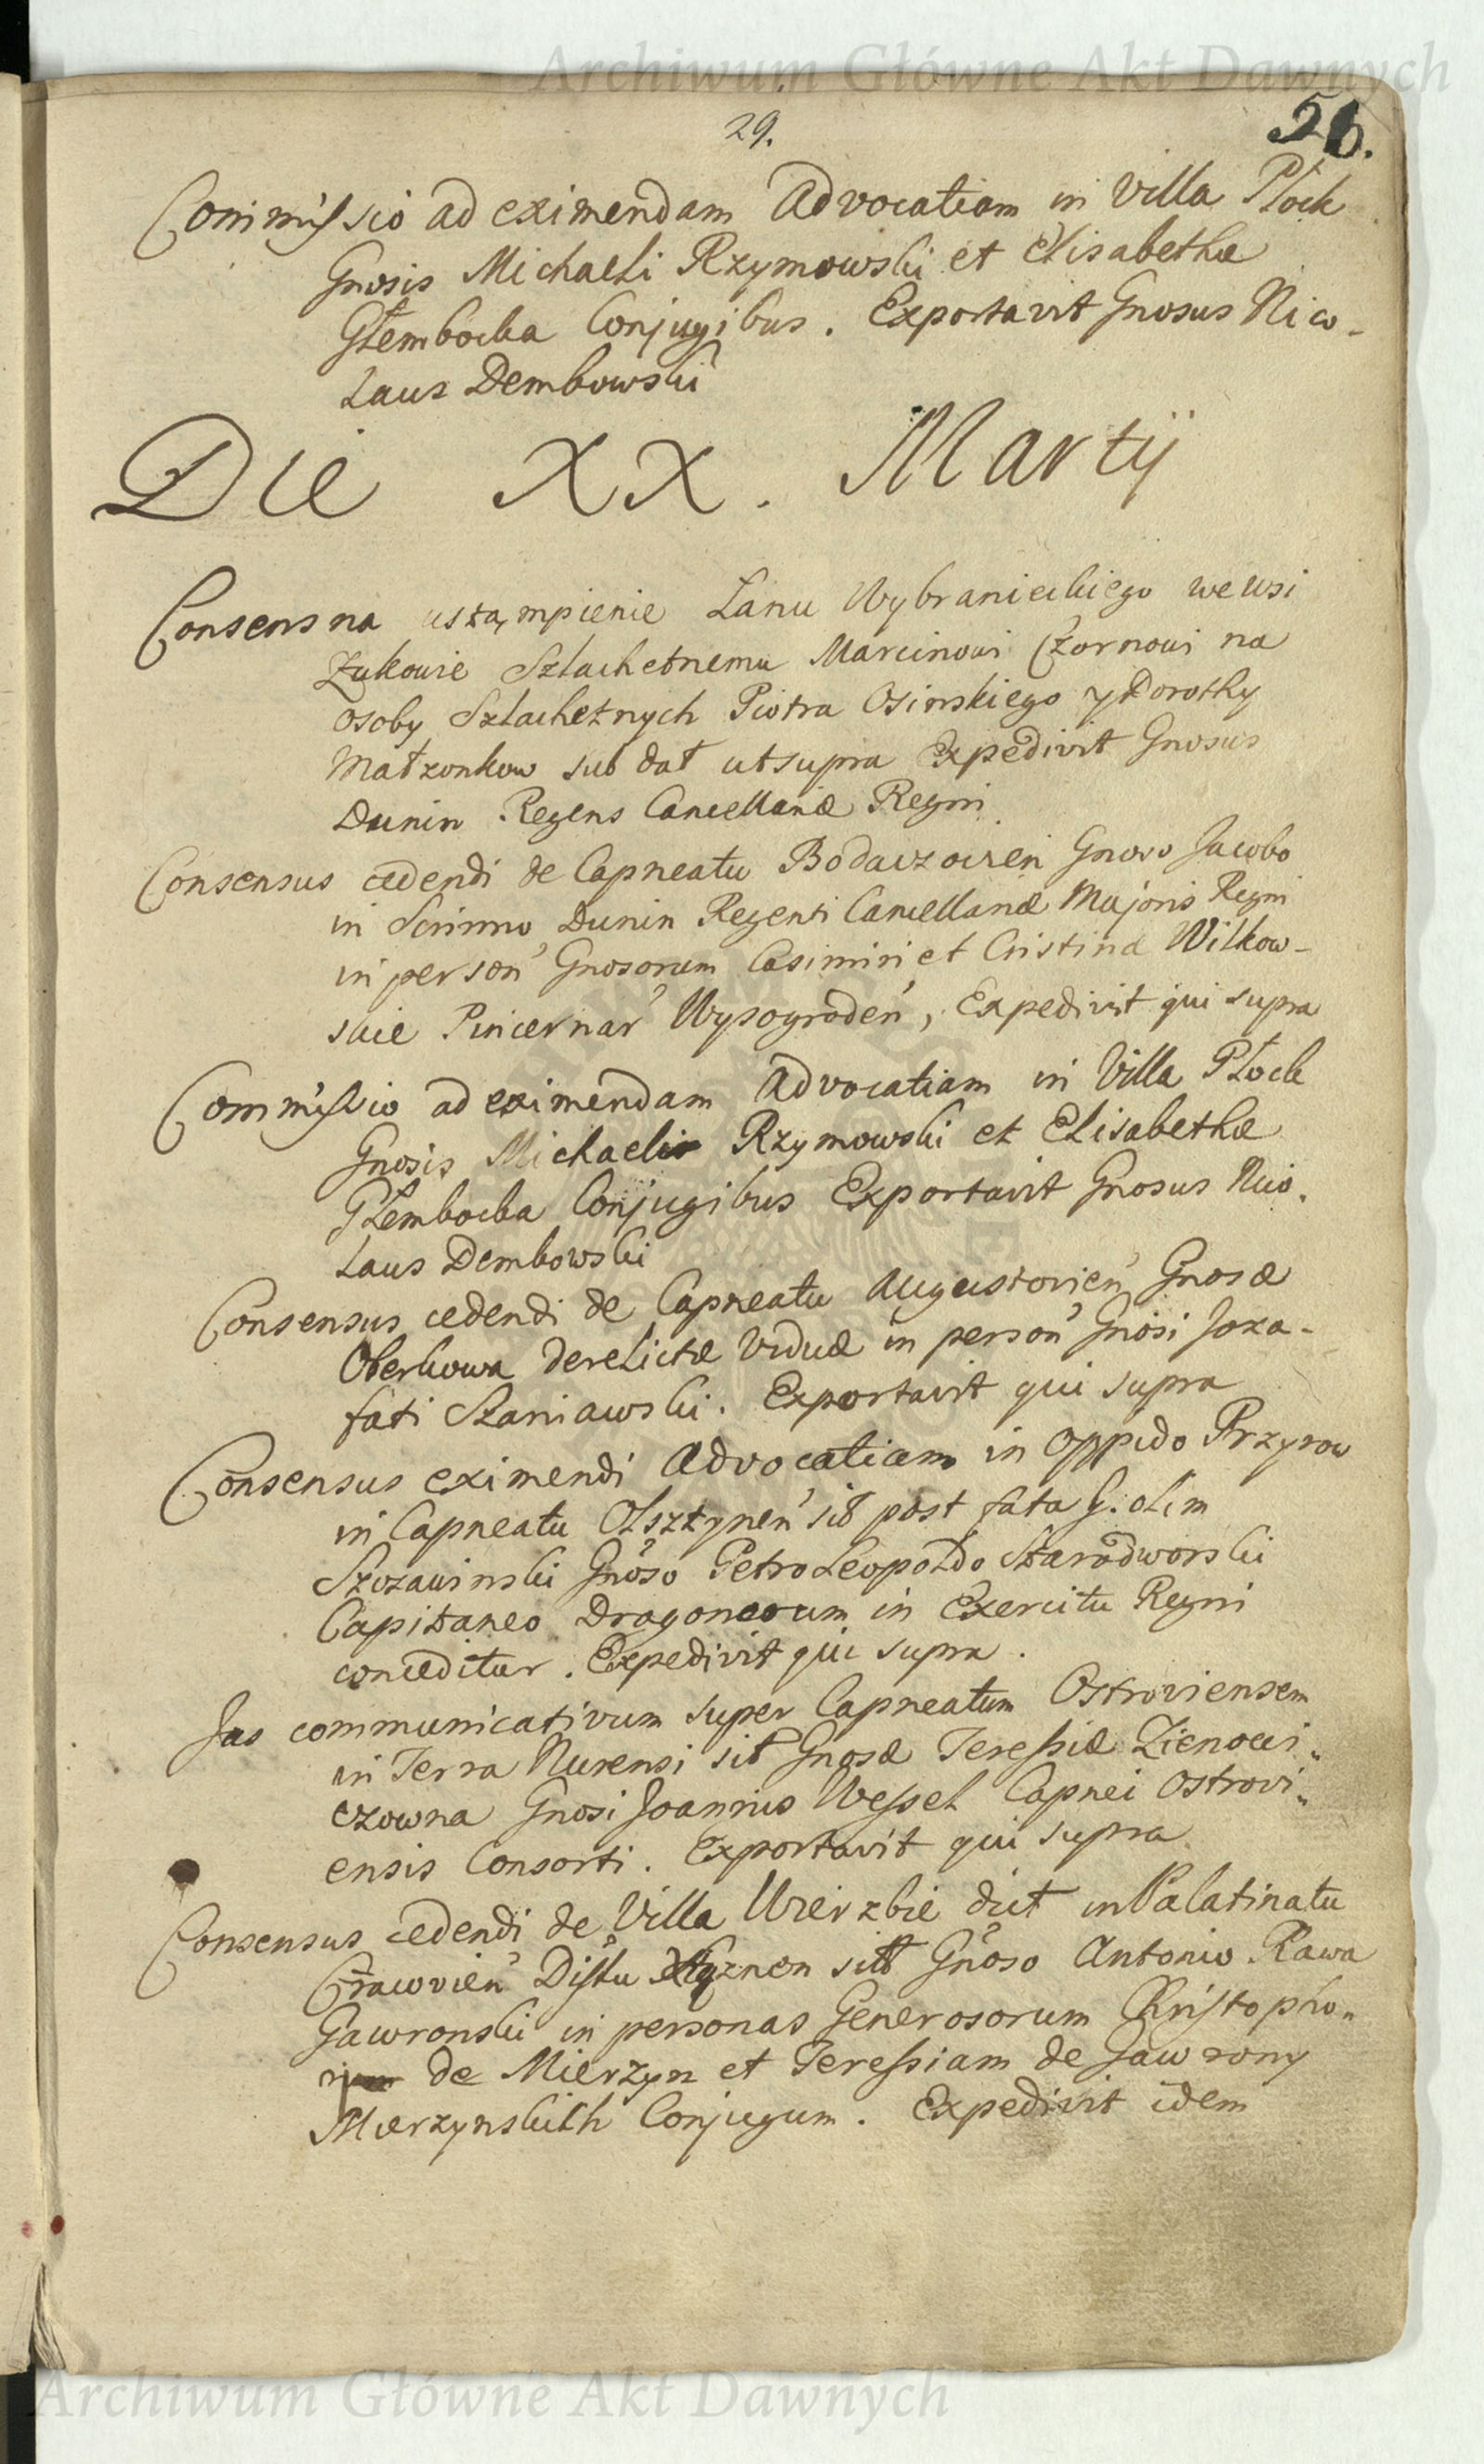 Archiwum Główne Akt Dawnych
29.
56.
Commissio ad eximendam Advocatiam in Villa Płock
Gnosis Michaeli Rzymowski et Elisabethæ
Głembocka Conjugibus. Exportavit Gnosus Nico-
laus Dembowski
Die XX. Martij
Consens na ustąmpienie Łanu Wybranieckiego we wsi
Zukowie Szlachetnemu Marcinowi Czornowi na
osoby Szlachetnych Piotra Osinskiego y Dorothy
Małzonkow sub dat ut supra Expedivit Gnosus
Dunin Regens Cancellariæ Regni
Consensus cedendi de Capneatu Bodaczovien Gnoso Jacobo
in Scrinno Dunin Regenti Cancellariæ Majoris Regni
in person Gnosorum Casimiri et Cristinæ Wilkow-
skie Pincernar Wyszogroden, Expedivit qui supra
Commissio ad eximendam Advocatiam in Villa Płock
Gnosis Michaeli Rzymowski et Elisabethæ
Głembocka Conjugibus Exportavit Gnosus Nico-
laus Dembowski
Consensus cedendi de Capneatu Augustovien Gnosæ
Oberkowa derelictæ Viduæ in person Gnosi Joza-
fati Szaniawski. Exportavit qui supra
Consensus eximendi Advocatiam in Oppido Przyrow
in Capneatu Olsztynen sit post fata G. olim
Gnoso Petro Leopoldo Starodworski
Capitaneo Dragonorum in Exercitu Regni
conceditur. Expedivit qui supra.
Jus communicativum super Capneatum Ostroviensem
in Terra Nurensi sit Gnosæ Teressiæ Zienowi-
czowna Gnosi Joannis Wessel Capnei Ostrovi-
ensis Consorti. Exportavit qui supra
Consensus cedendi de Villa Wierzbie dict in Palatinatu
Cracovien Distu sit Gnoso Antonio Rawa
Gawronski in personas Generosorum Christopho-
rum de Mierzyn et Teressiam de Gawrony
Mierzynskich Conjugum. Expedivit idem
Archiwum Główne Akt Dawnych